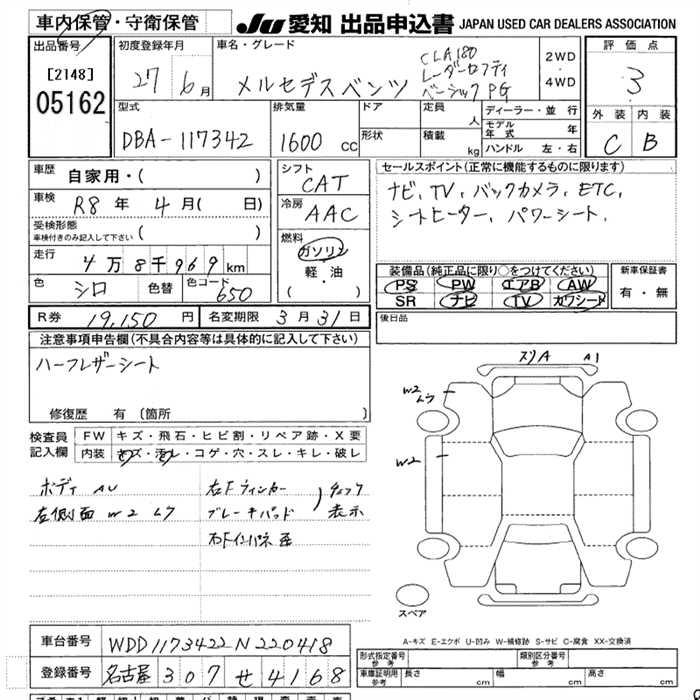 車内保管・守衛保管
JU 愛知 出品申込書 JAPAN USED CAR DEALERS ASSOCIATION
出品番号 初度登録年月 車名・グレード 評価点
[2148] 27年 6月 メルセデスベンツ CLA180 2WD 3
05162 レーダーセフティ 4WD
ベーシックPG 外装 内装
型式 排気量 ドア 定員 人 ディーラー・並行 C B
DBA-117342 1600 cc 形状 積載 kg モデル年式 年
ハンドル 左・右
車歴 自家用・( ) シフト CAT セールスポイント(正常に機能するものに限ります)
車検 R8年 4月( 日) 冷房 AAC ナビ、TV、バックカメラ、ETC、
受検形態 車検付きのみ記入して下さい ( ) シートヒーター、パワーシート、
走行 4万8千969km 燃料 ガソリン 装備品(純正品に限り○をつけてください) 新車保証書
色 シロ 色替 色コード 650 軽・油 PS PW エアB AW 有・無
( ・ ) SR ナビ TV カワシート
R券 19,150円 名変期限 3月31日 後日品
注意事項申告欄(不具合内容等は具体的に記入して下さい)
ハーフレザーシート
スリA A1
W2 ムラ
修復歴 有 〔箇所 〕
検査員記入欄 FW キズ・飛石・ヒビ割・リペア跡・X要 W2
内装 キズ・汚レ・コゲ・穴・スレ・キレ・破レ
ボディ AU 右Fウィンカー チェック
左側面 W2 ムラ ブレーキパッド 表示
スペア
A-キズ E-エクボ U-凹み W-補修跡 S-サビ C-腐食 XX-交換済
車台番号 WDD1173422N220418 形式指定番号 参考 類別区分番号 参考
登録番号 名古屋 307 せ 4168 車庫証明用 参考 長さ cm 幅 cm 高さ cm